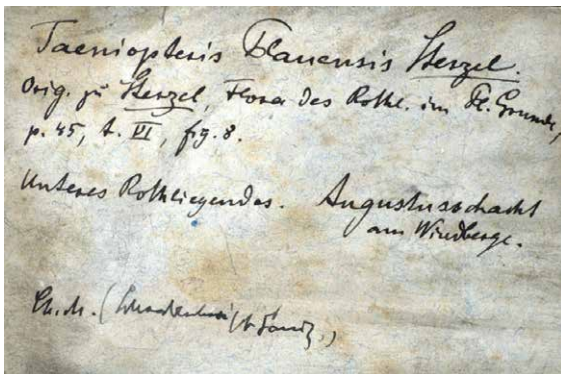 Taeniopteris Plauensis Sterzel.
Orig. zu Sterzel, Flora des Rothl. im Pl. Grunde,
p. 45, t. VI, fig. 8.
Unteres Rothliegendes. Augustusschacht
am Windberge.